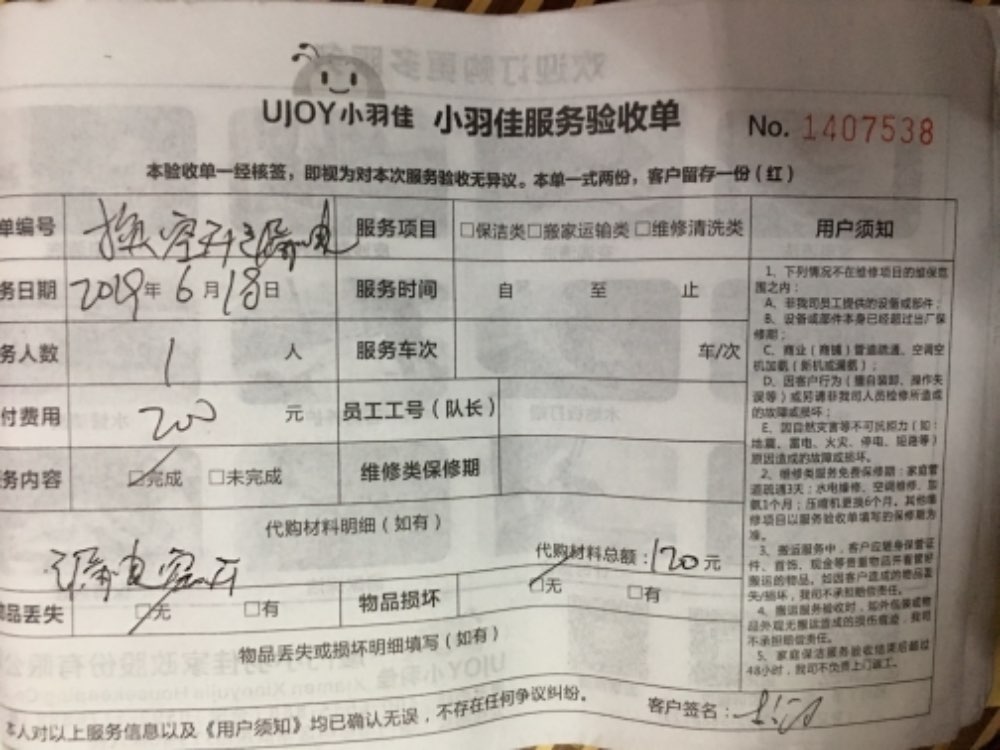 UJOY小羽佳 小羽佳服务验收单 No. 1407538
本验收单一经核签，即视为对本次服务验收无异议。本单一式两份，客户留存一份（红）
单编号 换空开漏电 服务项目 □保洁类□搬家运输类□维修清洗类 用户须知
务日期 2019年6月18日 服务时间 自 至 止
务人数 1 人 服务车次 车/次
付费用 200 元 员工工号（队长）
务内容 □完成 □未完成 维修类保修期
代购材料明细（如有）
漏电空开 代购材料总额：120元
品丢失 □无 □有 物品损坏 □无 □有
物品丢失或损坏明细填写（如有）
本人对以上服务信息以及《用户须知》均已确认无误，不存在任何争议纠纷。 客户签名：
1、下列情况不在维修项目的维保范
围之内：
A、非我司员工提供的设备或部件；
B、设备或部件本身已经超过出厂保
修期；
C、商业（商铺）管道疏通、空调空
机加氟（新机或漏氟）；
D、因客户行为（擅自装卸、操作失
误等）或另请非我司人员检修所造成
的故障或损坏；
E、因自然灾害等不可抗拒力（如：
地震、雷电、火灾、停电、短路等）
原因造成的故障或损坏。
2、维修类服务免费保修期：家庭管
道疏通3天；水电维修、空调维修、加
氨1个月；压缩机更换6个月。其他维
修项目以服务验收单填写的保修期为
准。
3、搬运服务中，客户应随身保管证
件、首饰、现金等贵重物品并看管好
搬运的物品。如因客户造成的物品丢
失/损坏，我司不承担赔偿责任。
4、搬运服务验收时，如外包装或物
品外观无搬运造成的损伤痕迹，我司
不承担赔偿责任。
5、家庭保洁服务验收结束后超过
48小时，我司不负责上门返工。